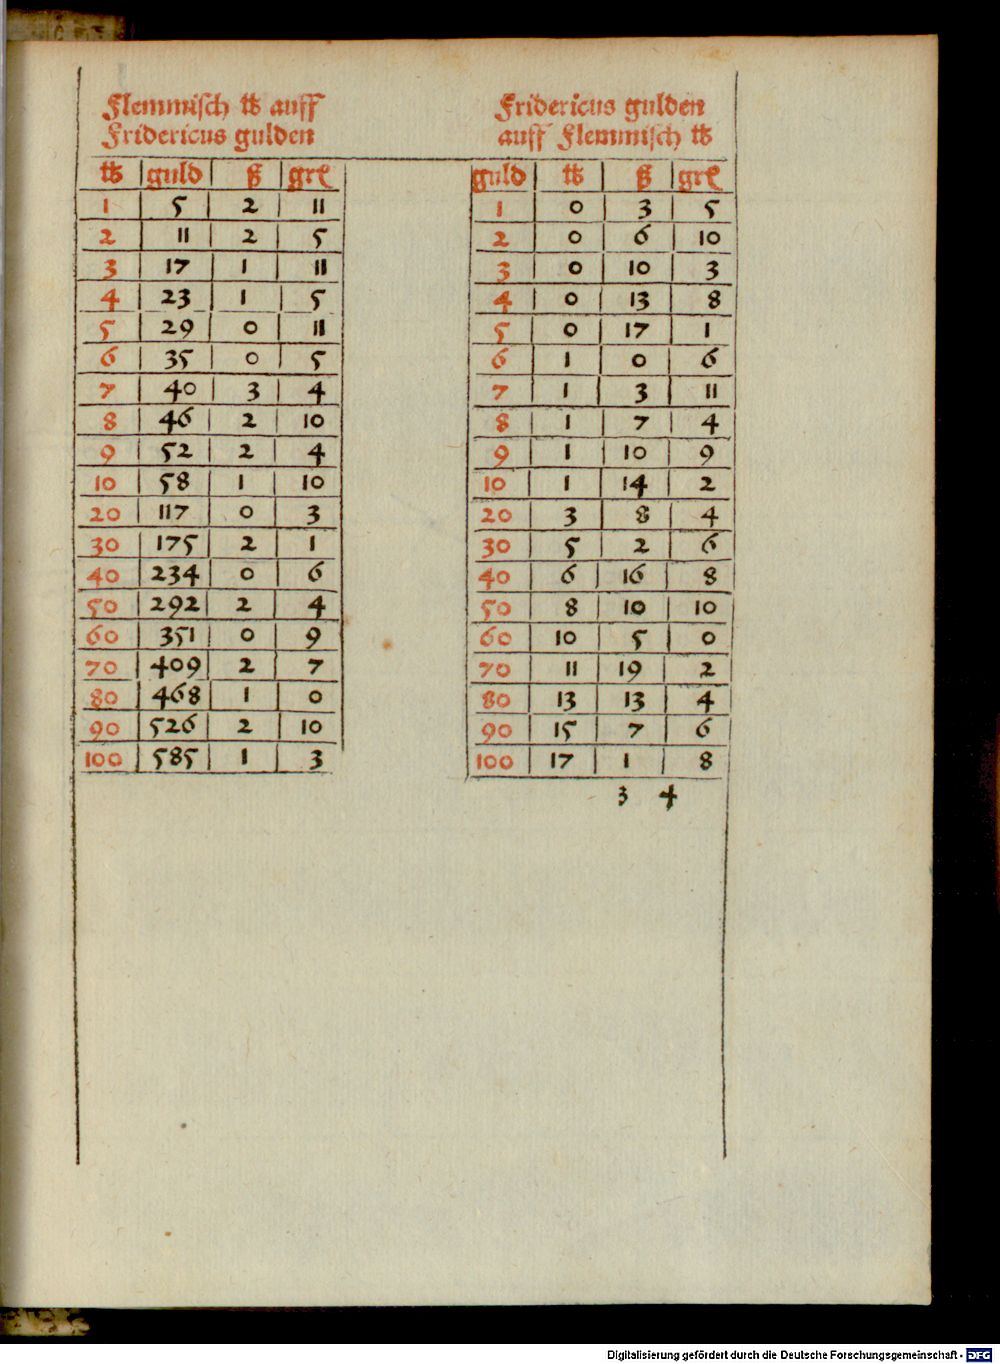 Flemmisch ℔ auff
Fridericus gulden
℔ guld ß grꝭ
1 5 2 11
2 11 2 5
3 17 1 11
4 23 1 5
5 29 0 11
6 35 0 5
7 40 3 4
8 46 2 10
9 52 2 4
10 58 1 10
20 117 0 3
30 175 2 1
40 234 0 6
50 292 2 4
60 351 0 9
70 409 2 7
80 468 1 0
90 526 2 10
100 585 1 3
Fridericus gulden
auff Flemmisch ℔
guld ℔ ß grꝭ
1 0 3 5
2 0 6 10
3 0 10 3
4 0 13 8
5 0 17 1
6 1 0 6
7 1 3 11
8 1 7 4
9 1 10 9
10 1 14 2
20 3 8 4
30 5 2 6
40 6 16 8
50 8 10 10
60 10 5 0
70 11 19 2
80 13 13 4
90 15 7 6
100 17 1 8
3 4
Digitalisierung gefördert durch die Deutsche Forschungsgemeinschaft - DFG